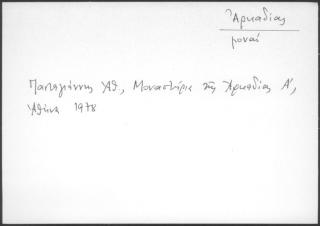 Ἀρκαδίας
μοναί
Παπαγιάννης Ἀθ., Μοναστήρια τῆς Ἀρκαδίας Α',
Ἀθήνα 1978